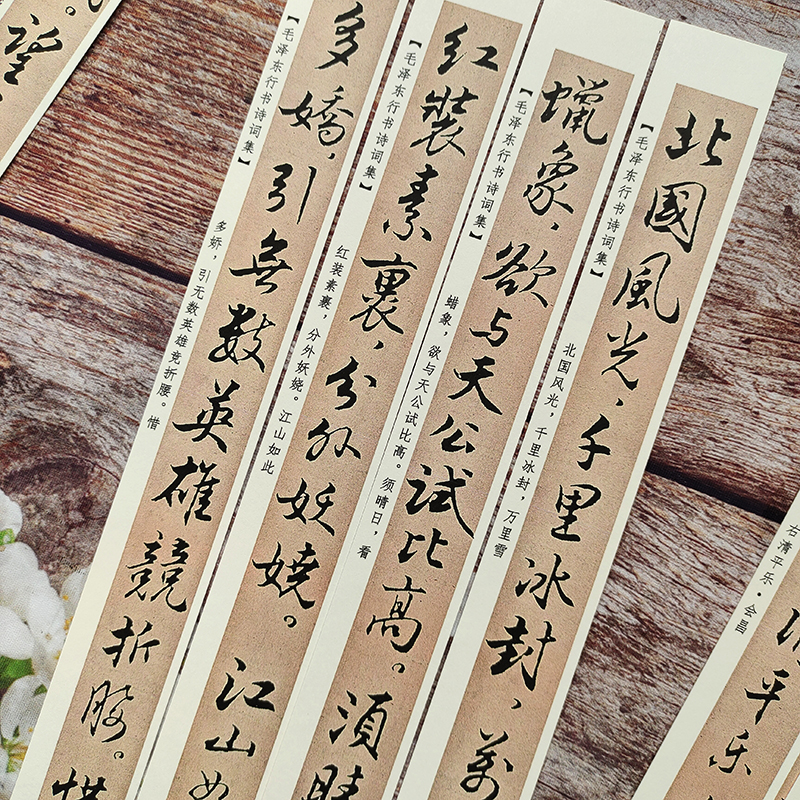 北國風光，千里冰封，万
【毛泽东行书诗词集】
北国风光，千里冰封，万里雪
蠟象，欲与天公試比高。須晴
【毛泽东行书诗词集】
蜡象，欲与天公试比高。须晴日，看
红裝素裹，分外妖嬈。江山如
【毛泽东行书诗词集】
红装素裹，分外妖娆。江山如此
多嬌，引無数英雄競折腰。惜
【毛泽东行书诗词集】
多娇，引无数英雄竞折腰。惜
望
右清平乐·会昌
清平乐